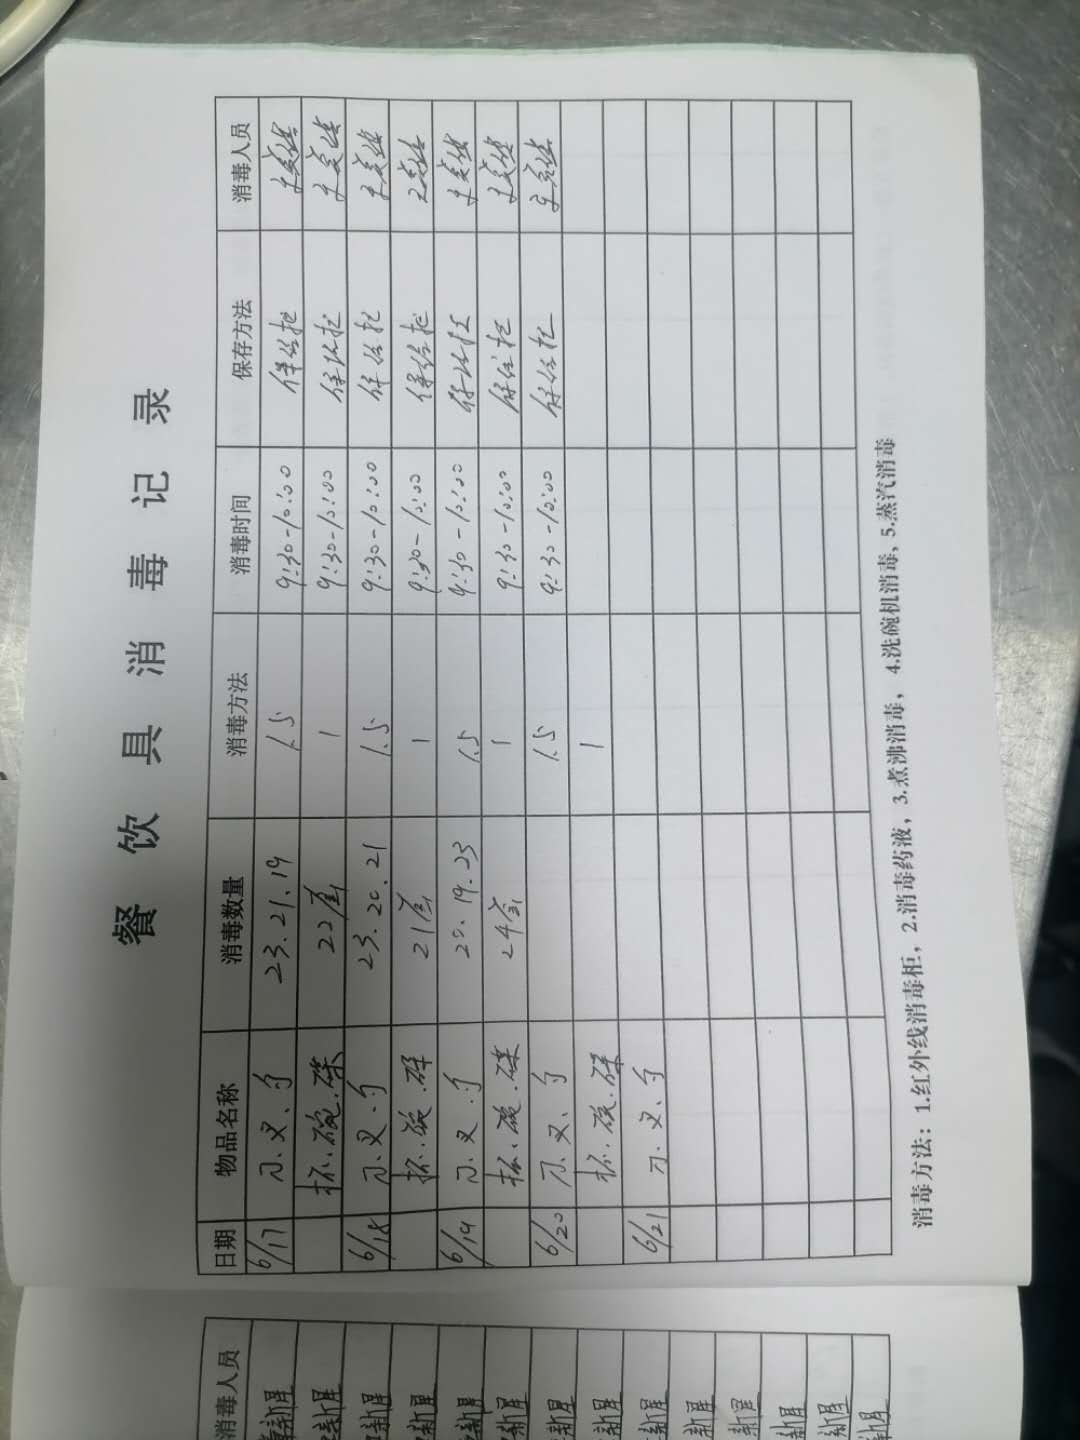 餐饮具消毒记录
日期 物品名称 消毒数量 消毒方法 消毒时间 保存方法 消毒人员
6/17 刀、叉、勺 23.21.19 1.5 9:30-10:00 保洁柜
杯、碗、碟 22套 1 9:30-10:00 保洁柜
6/18 刀、叉、勺 23.20.21 1.5 9:30-10:00 保洁柜
杯、碗、碟 21套 1 9:30-10:00 保洁柜
6/19 刀、叉、勺 20.19.23 1.5 9:30-10:00 保洁柜
杯、碗、碟 24套 1 9:30-10:00 保洁柜
6/20 刀、叉、勺 1.5 9:30-10:00 保洁柜
杯、碗、碟 1
6/21 刀、叉、勺
消毒方法：1.红外线消毒柜，2.消毒药液，3.煮沸消毒，4.洗碗机消毒，5.蒸汽消毒
消毒人员